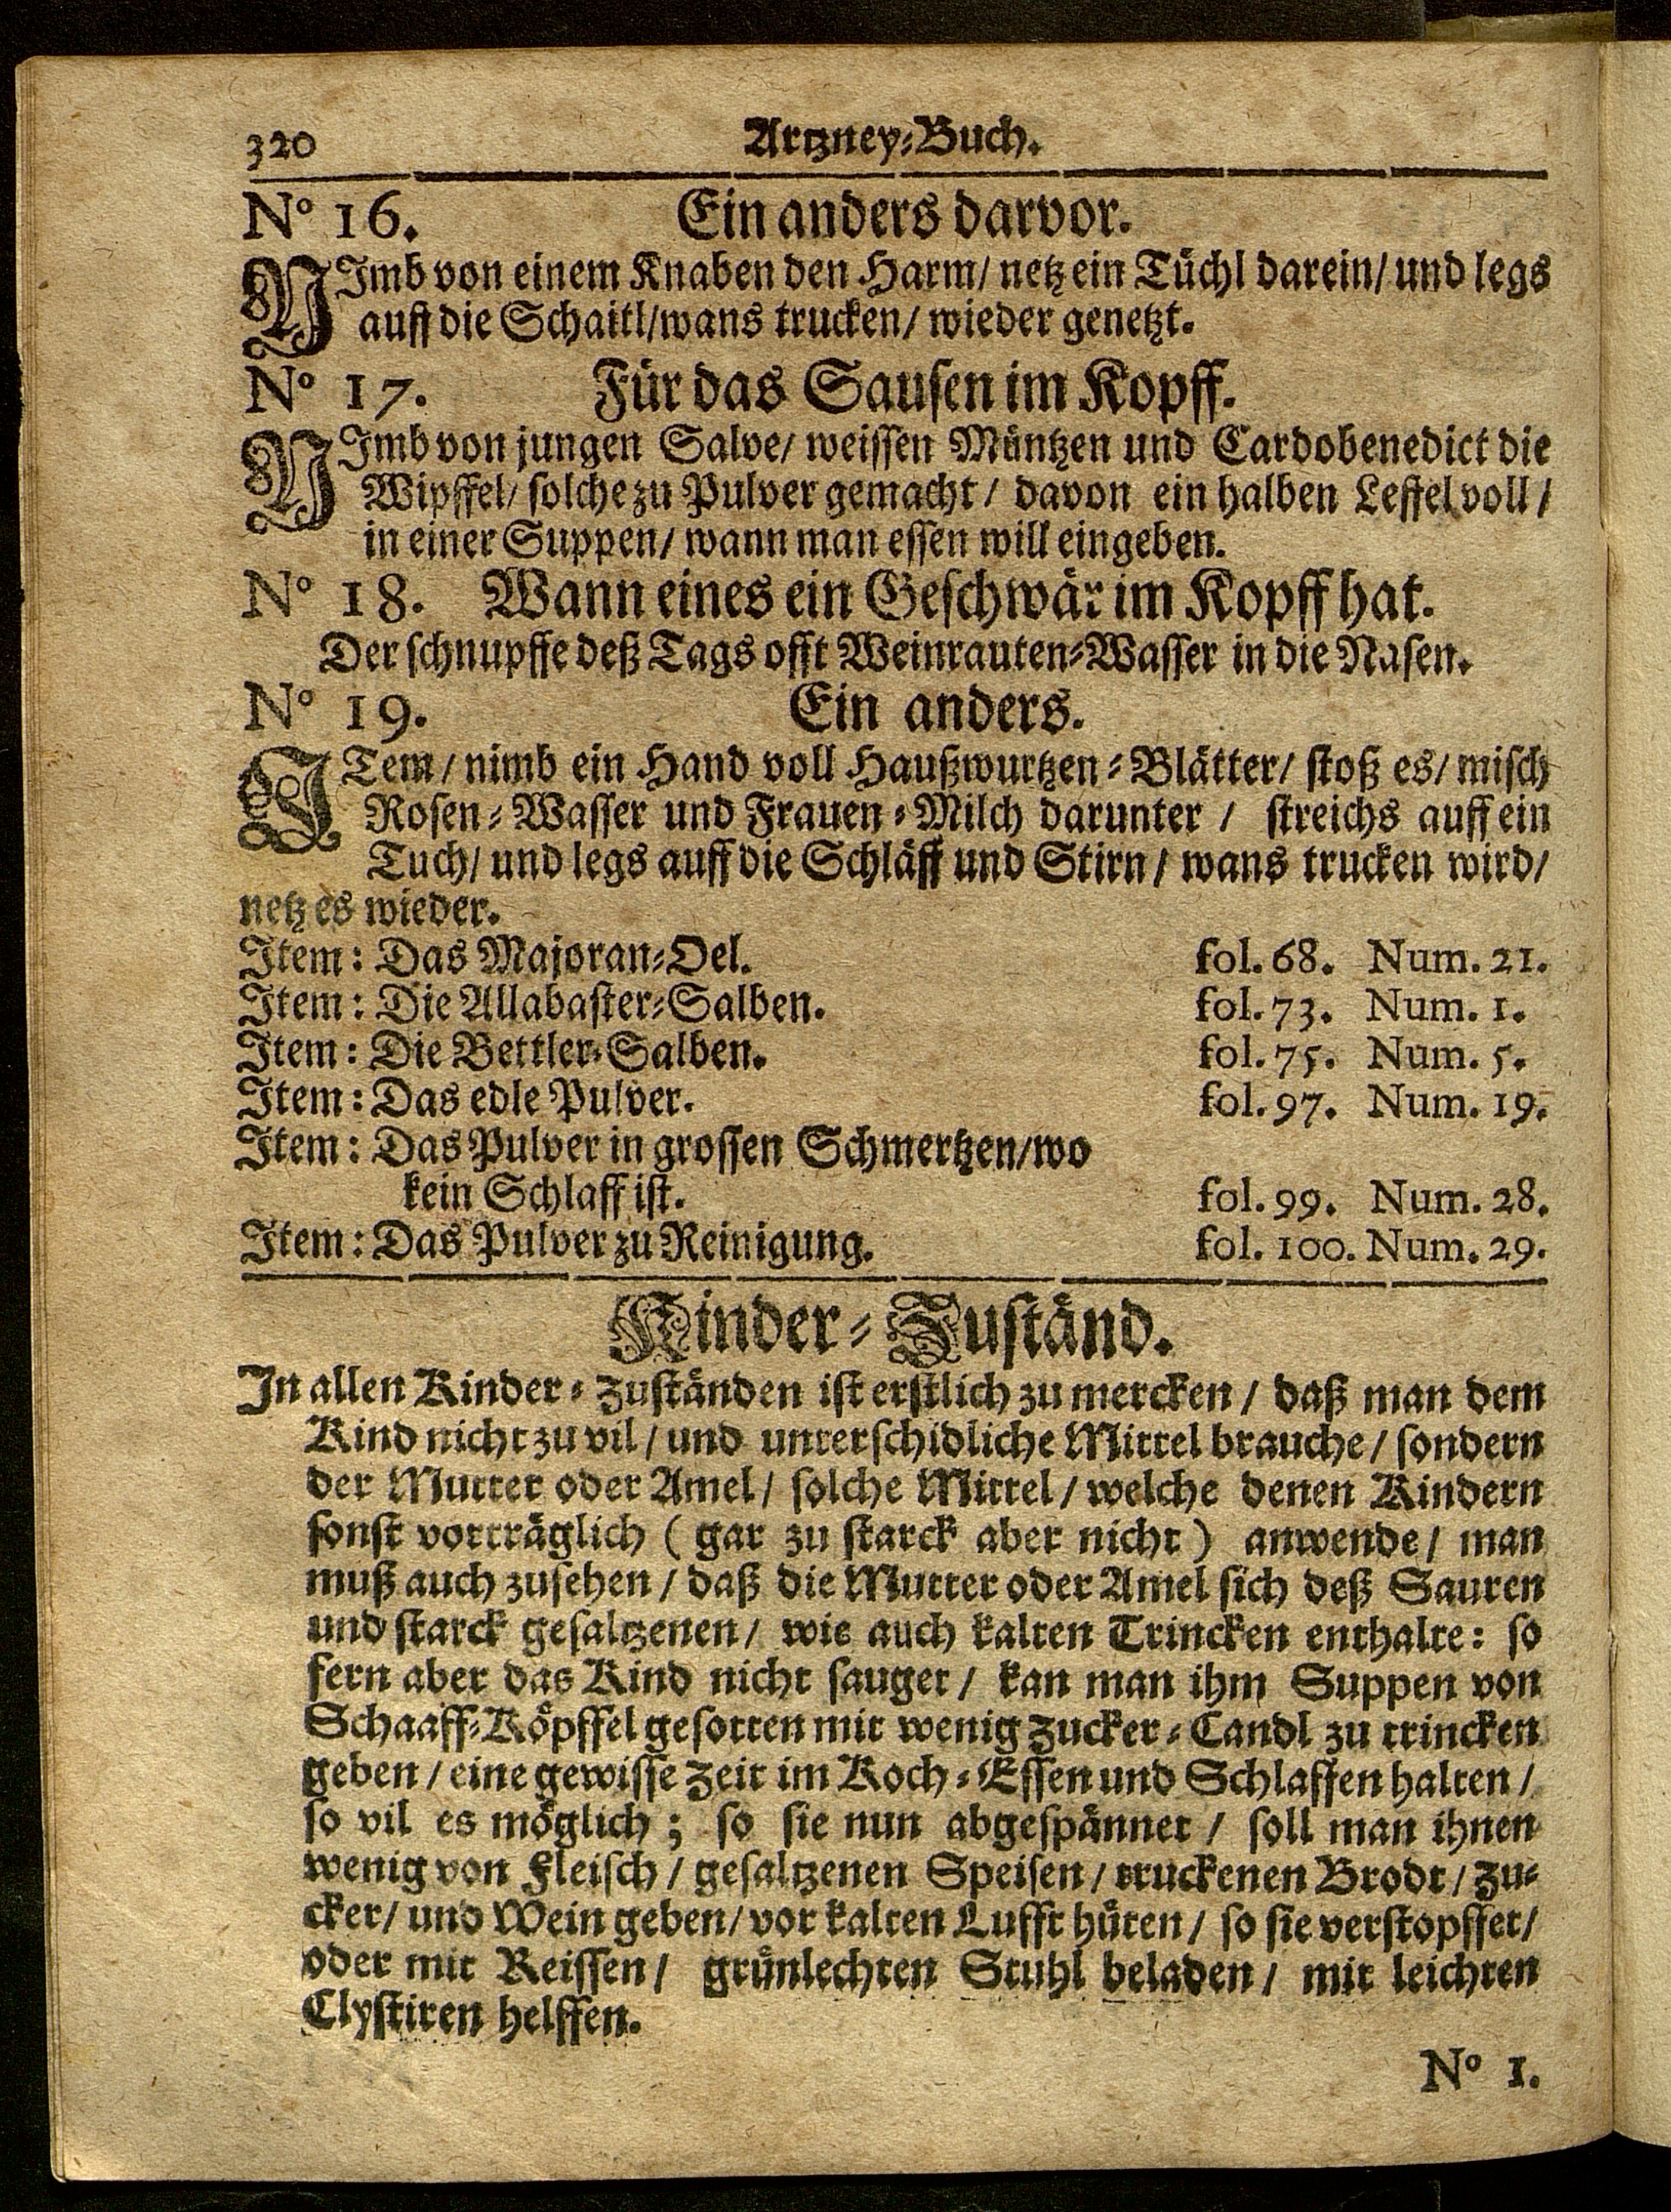 320 Artzney-Buch.
No 16. Ein anders darvor.
NImb von einem Knaben den Harm/ netz ein Tüchl darein/ und legs
auff die Schaitl/wans trucken/ wieder genetzt.
No 17. Für das Sausen im Kopff.
NImb von jungen Salve/ weissen Müntzen und Cardobenedict die
Wipffel/ solche zu Pulver gemacht / davon ein halben Leffel voll /
in einer Suppen/ wann man essen will eingeben.
No 18. Wann eines ein Geschwär im Kopff hat.
Der schnupffe deß Tags offt Weinrauten-Wasser in die Nasen.
No 19. Ein anders.
ITem / nimb ein Hand voll Haußwurtzen-Blätter/ stoß es/ misch
Rosen-Wasser und Frauen-Milch darunter / streichs auff ein
Tuch/ und legs auff die Schläff und Stirn / wans trucken wird/
netz es wieder.
Item: Das Majoran-Oel. fol. 68. Num. 21.
Item: Die Allabaster-Salben. fol. 73. Num. 1.
Item: Die Bettler-Salben. fol. 75. Num. 5.
Item: Das edle Pulver. fol. 97. Num. 19.
Item: Das Pulver in grossen Schmertzen/wo
kein Schlaff ist. fol. 99. Num. 28.
Item: Das Pulver zu Reinigung. fol. 100. Num. 29.
Kinder-Zuständ.
In allen Kinder-Zuständen ist erstlich zu mercken / daß man dem
Kind nicht zu vil / und unterschidliche Mittel brauche / sondern
der Mutter oder Amel / solche Mittel / welche denen Kindern
sonst vorträglich ( gar zu starck aber nicht ) anwende / man
muß auch zusehen / daß die Mutter oder Amel sich deß Sauren
und starck gesaltzenen / wie auch kalten Trincken enthalte: so
fern aber das Kind nicht sauget / kan man ihm Suppen von
Schaaff-Köpffel gesotten mit wenig Zucker-Candl zu trincken
geben / eine gewisse Zeit im Koch-Essen und Schlaffen halten /
so vil es möglich ; so sie nun abgespännet / soll man ihnen
wenig von Fleisch / gesaltzenen Speisen / truckenen Brodt / Zu-
cker/ und Wein geben/ vor kalten Lufft hüten / so sie verstopffet/
oder mit Reissen / grünlechten Stuhl beladen / mit leichten
Clystiren helffen.
No 1.